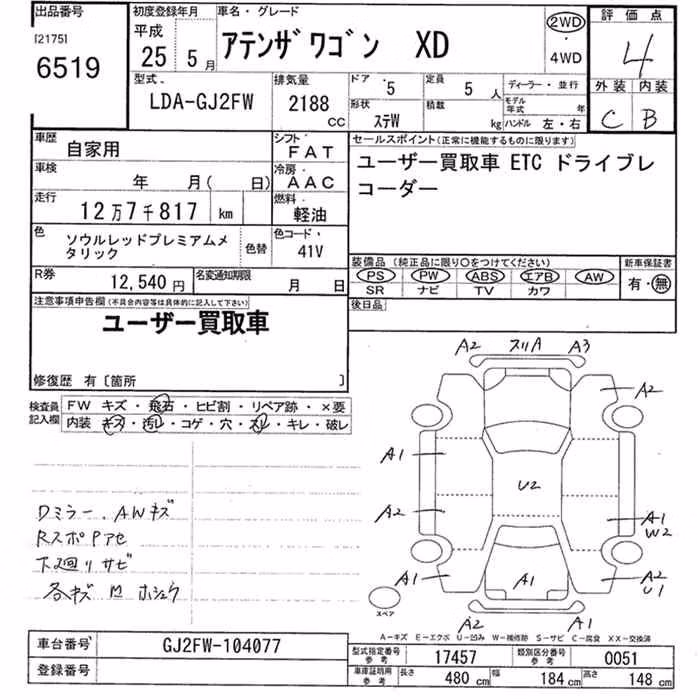 出品番号
[2175]
6519
初度登録年月
平成
25 5月
車名・グレード
アテンザワゴン XD
2WD
・
4WD
評価点
4
外装 内装
C B
型式
LDA-GJ2FW
排気量
2188
CC
ドア・ 5
定員 5 人
ディーラー・並行
形状
ステW
積載
kg
モデル年式 年
ハンドル 左・右
車歴
自家用
シフト
FAT
車検
年 月( 日)
冷房
AAC
走行
12万7千817 km
燃料
軽油
色
ソウルレッドプレミアムメタリック
色替
色コード・
41V
R券
12,540円
名変通知期限
月 日
セールスポイント(正常に機能するものに限ります)
ユーザー買取車 ETC ドライブレ
コーダー
装備品(純正品に限り○をつけてください)
PS PW ABS エアB AW
SR ナビ TV カワ
新車保証書
有・無
後日品
注意事項申告欄(不具合内容等は具体的に記入して下さい)
ユーザー買取車
修復歴 有〔箇所 〕
検査員
記入欄
FW キズ・飛石・ヒビ割・リペア跡・×要
内装 キズ・汚レ・コゲ・穴・スレ・キレ・破レ
Dミラー. AWキズ
RスポPアセ
下廻リサビ
各キズ 凹 ホシュウ
A2 スリA A3
A2
A1
U2
A2
A1
W2
A1
A1
A2
U1
スペア
A2
A1
A−キズ E−エクボ U−凹み W−補修跡 S−サビ C−腐食 XX−交換済
車台番号
GJ2FW-104077
登録番号
型式指定番号
参考
17457
類別区分番号
参考
0051
車庫証明用
参考
長さ 480 cm
幅 184 cm
高さ 148 cm